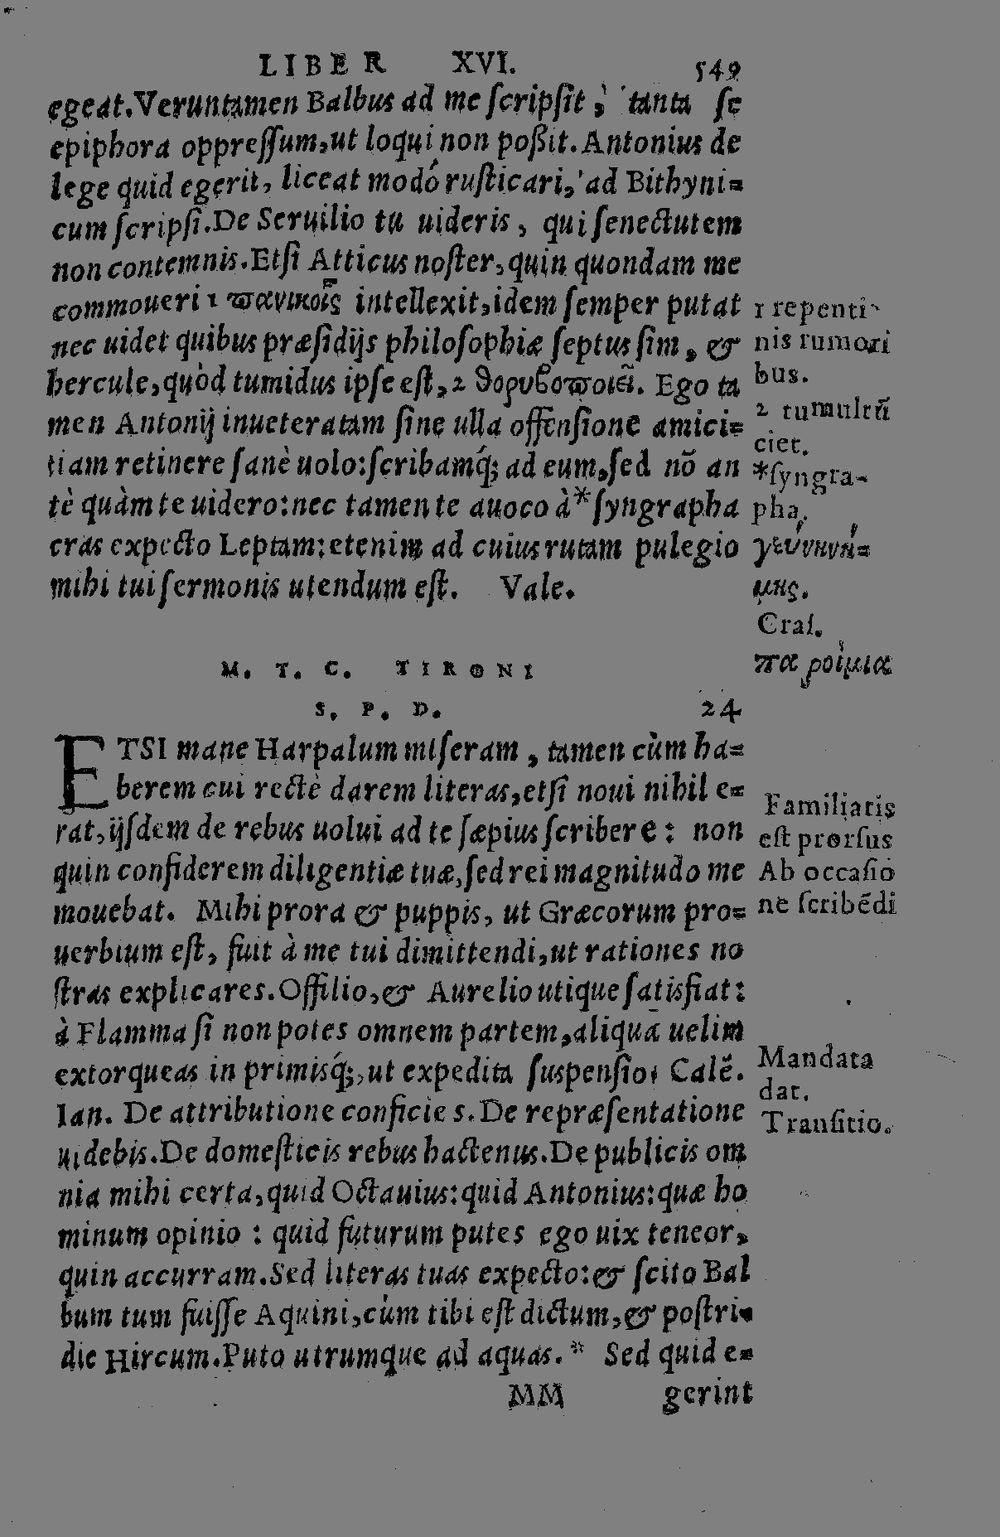 LIBER XVI. 549
egeat. Veruntamen Balbus ad me ſcripſit, tanta ſe
epiphora oppreſſum, ut loqui non poßit. Antonius de
lege quid egerit, liceat modó ruſticari, ad Bithyni=
cum ſcripſi. De Seruilio tu uideris, qui ſenectutem
non contemnis. Etſi Atticus noſter, quin quondam me
commoueri 1 ϖανικοῖς intellexit, idem ſemper putat
nec uidet quibus præſidijs philoſophiæ ſeptus ſim, &
hercule, quòd tumidus ipſe eſt, 2 ϑορυβοϖοιεῖ. Ego ta
men Antonij inueteratam ſine ulla offenſione amici=
tiam retinere ſanè uolo: ſcribamq́; ad eum, ſed nō an
tè quàm te uidero: nec tamen te auoco à * ſyngrapha
cras expecto Leptam: etenim ad cuius rutam pulegio
mihi tui ſermonis utendum eſt. Vale.
1 repenti
nis rumori
bus.
2 tumultū
ciet.
*ſyngra-
pha,
Craſ.
παροίμια
M. T. C. TIRONI
S. P. D. 24
ETSI mane Harpalum miſeram, tamen cùm ha=
berem cui rectè darem literas, etſi noui nihil e=
rat, ijſdem de rebus uolui ad te ſæpius ſcribere: non
quin confiderem diligentiæ tuæ, ſed rei magnitudo me
mouebat. Mihi prora & puppis, ut Græcorum pro=
uerbium eſt, fuit à me tui dimittendi, ut rationes no
ſtras explicares. Offilio, & Aurelio utique ſatisfiat:
à Flamma ſi non potes omnem partem, aliquā uelim
extorqueas in primisq́;, ut expedita ſuspenſio, Calē.
Ian. De attributione conficies. De repræſentatione
uidebis. De domeſticis rebus hactenus. De publicis om
nia mihi certa, quid Octauius: quid Antonius: quæ ho
minum opinio: quid futurum putes ego uix teneor,
quin accurram. Sed literas tuas expecto: & ſcito Bal
bum tum fuiſſe Aquini, cùm tibi eſt dictum, & poſtri=
die Hircum. Puto utrumque ad aquas. * Sed quid e=
Familiaris
eſt prorſus
Ab occaſio
ne ſcribēdi
Mandata
dat.
Tranſitio.
MM gerint